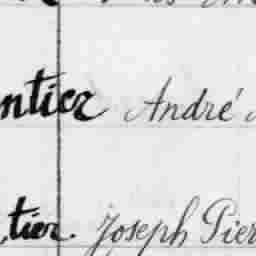 ntier André
tier Joseph Pier